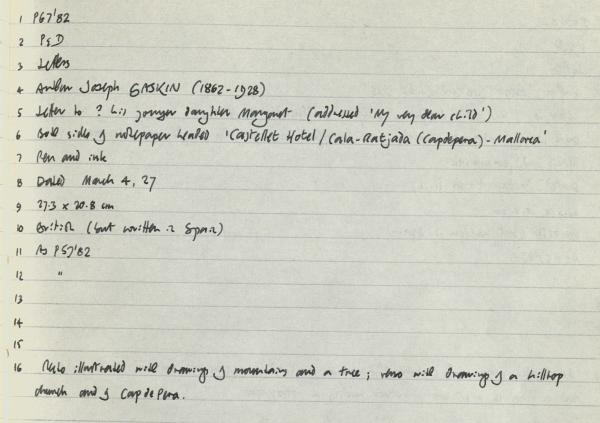 1 P67'82
2 P&D
3 Letters
4 Arthur Joseph GASKIN (1862-1928)
5 Letter to ? his younger daughter Margaret (addressed 'My very dear child')
6 Both sides of notepaper headed 'Castellet Hotel / Cala-Ratjada (Capdepera) - Mallorca'
7 Pen and ink
8 Dated March 4, 27
9 27.3 x 20.8 cm
10 British (but written in Spain)
11 As P57'82
12 "
13
14
15
16 Recto illustrated with drawing of mountains and a tree; verso with drawing of a hilltop
church and of Capdepera.